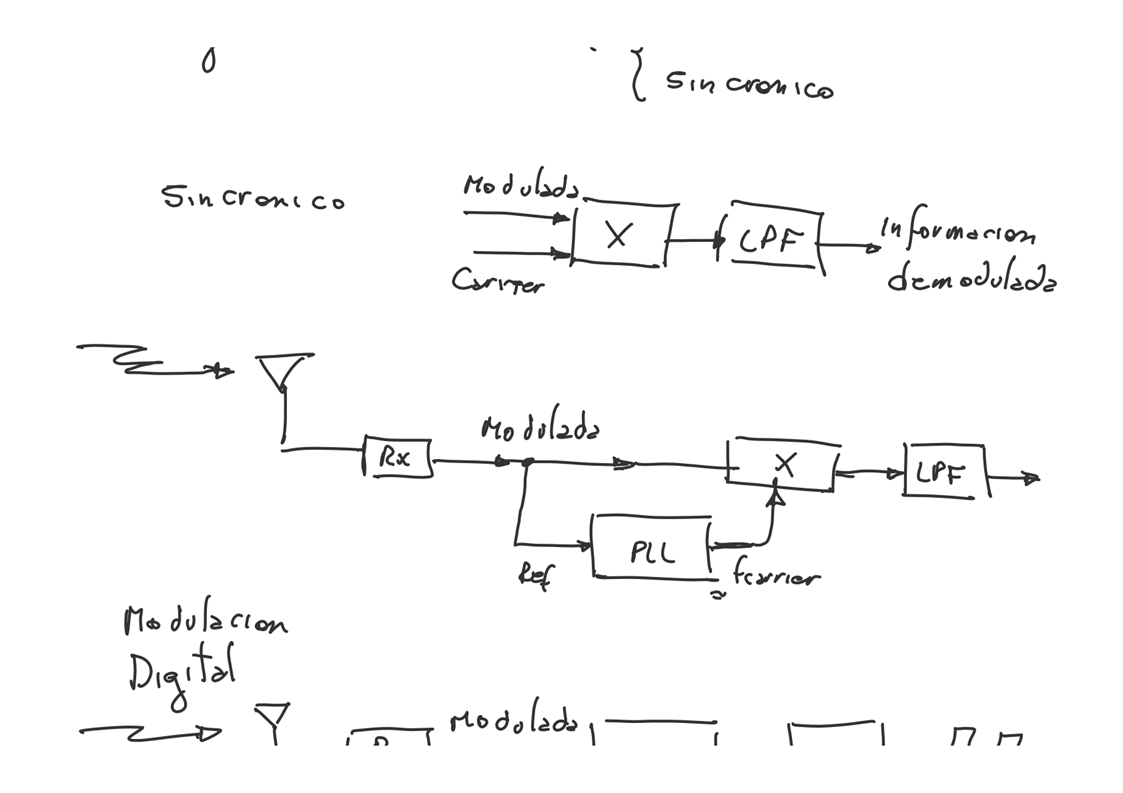 { Sincronico
Sincronico
Modulada
X
LPF
Informacion
demodulada
Carrier
Modulada
Rx
X
LPF
PLL
Ref
≈ fcarrier
Modulacion
Digital
Modulada